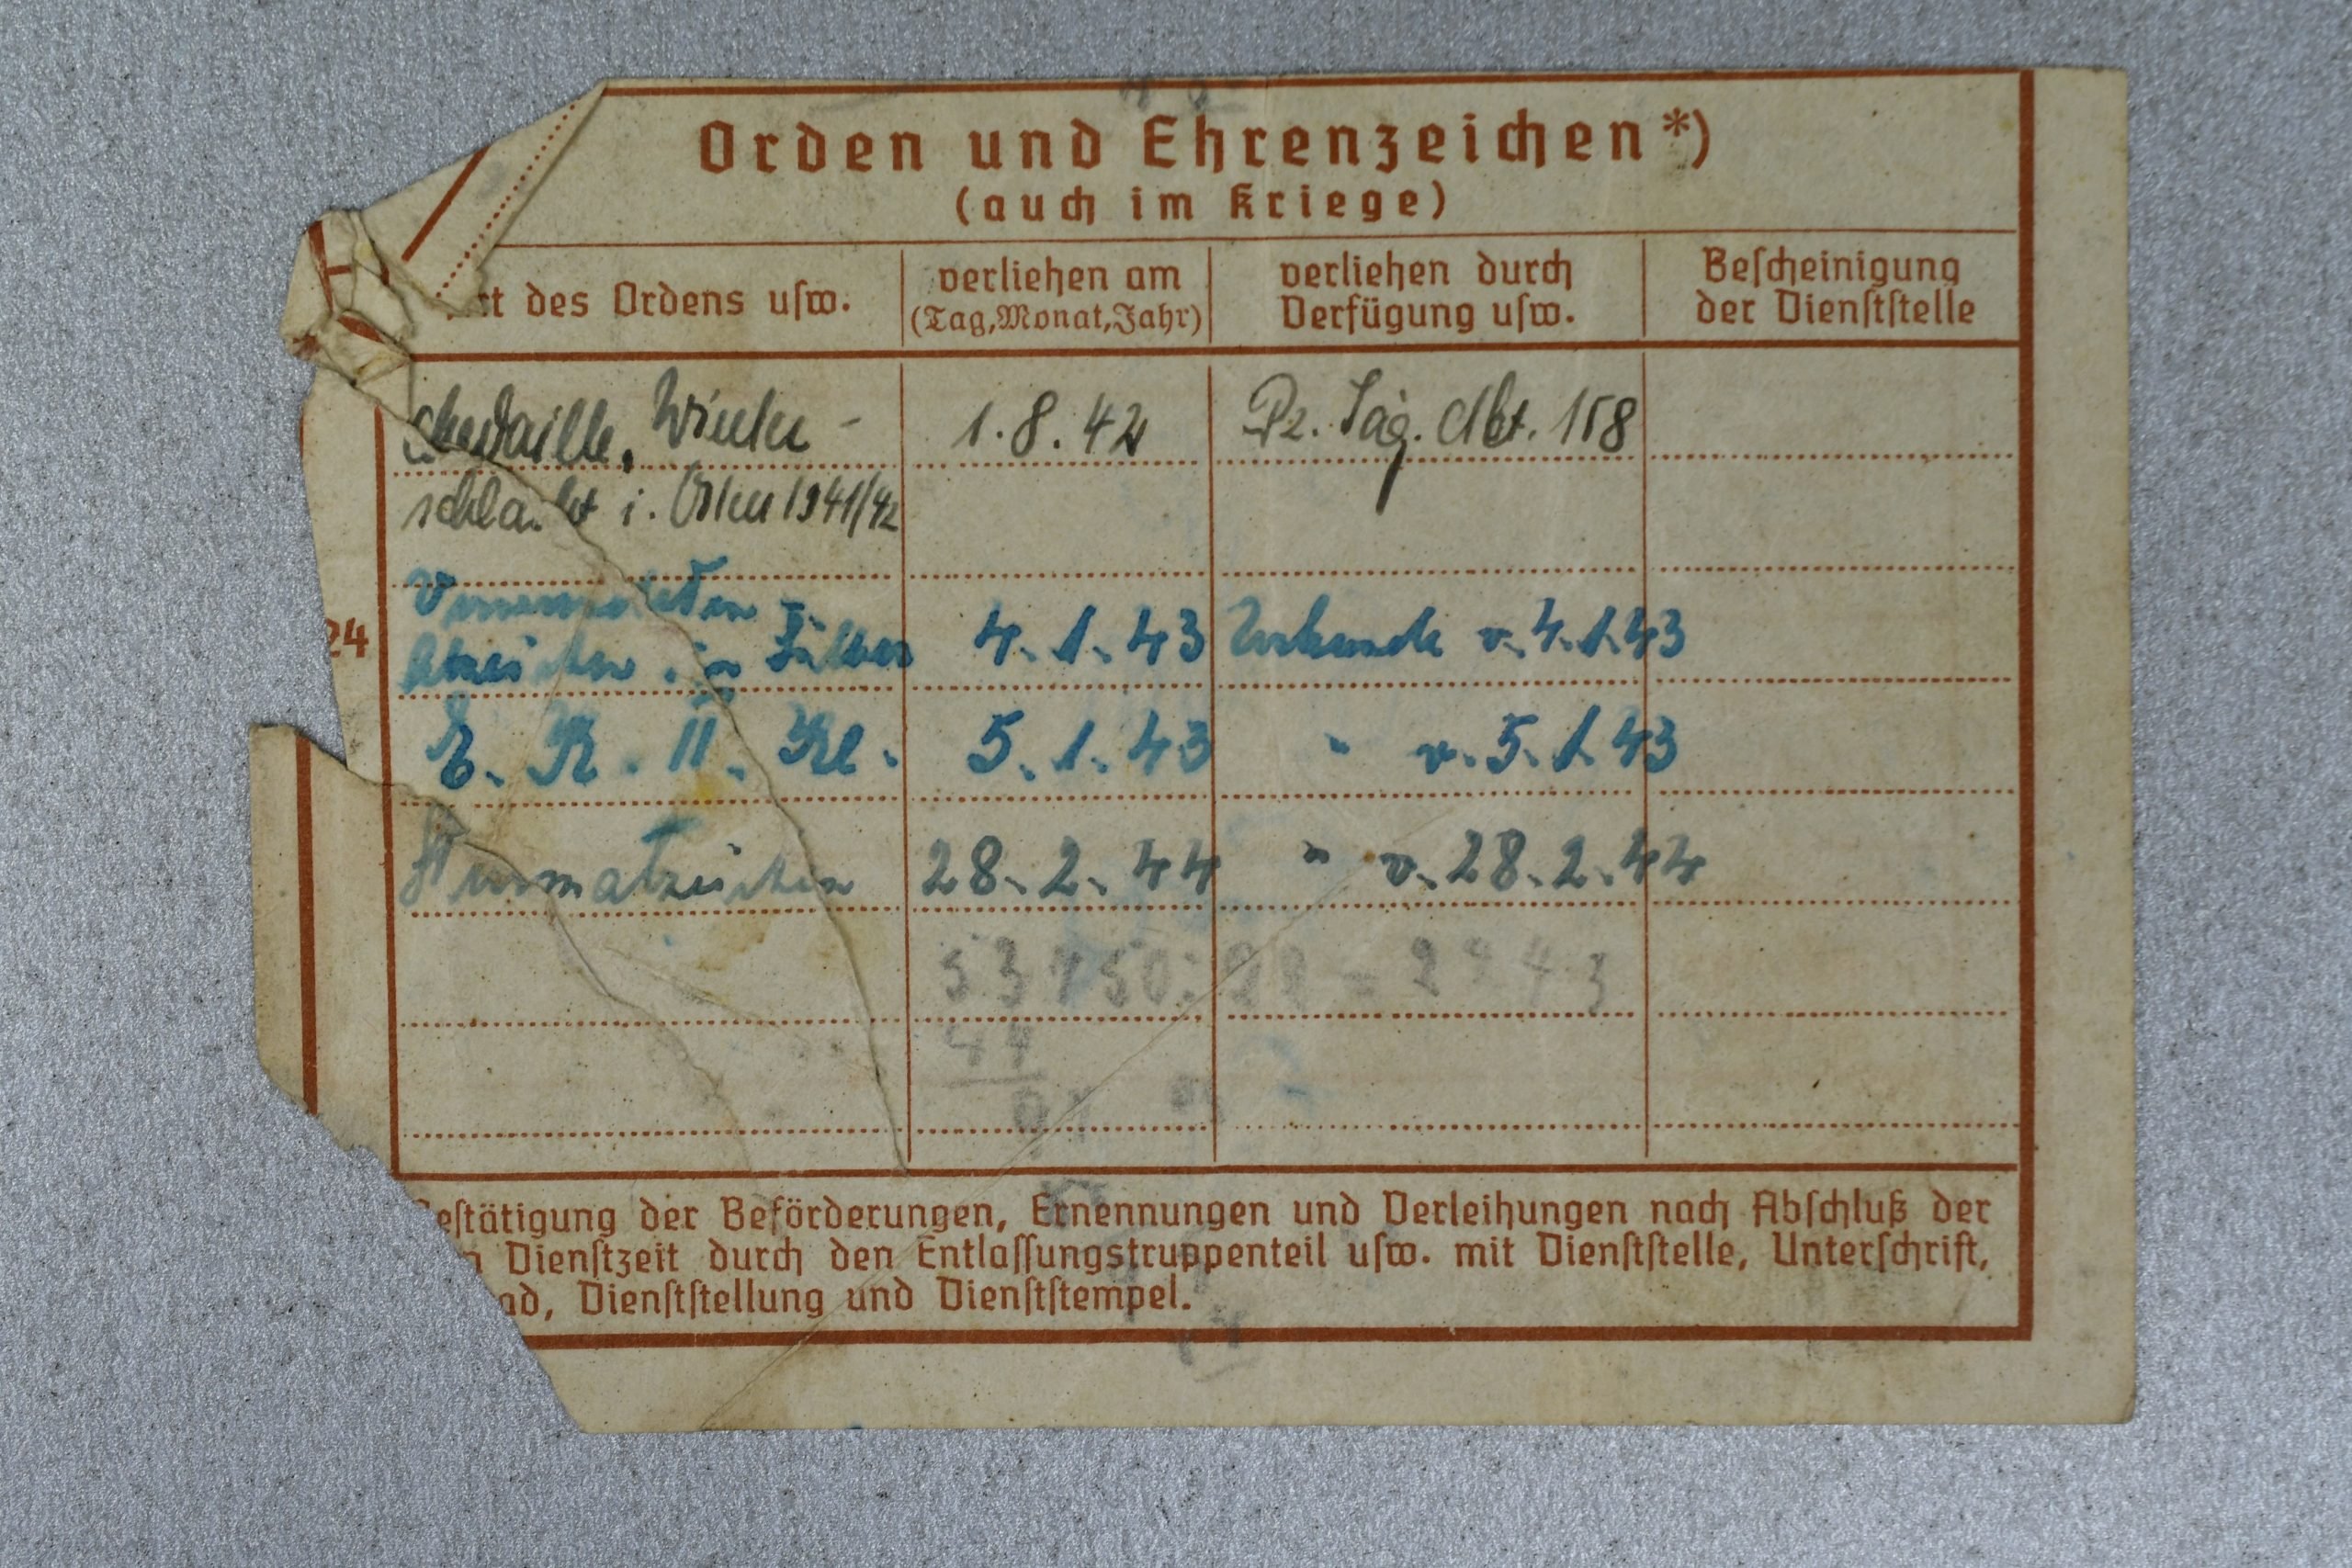 Orden und Ehrenzeichen*)
(auch im Kriege)
t des Ordens usw.
verliehen am
(Tag, Monat, Jahr)
verliehen durch
Verfügung usw.
Bescheinigung
der Dienststelle
Medaille, Winter- 1.8.42 Pz. Jäg. Abt. 158
schlacht i. Osten 1941/42
24
abzeichen in Silber 4.1.43 Urkunde v. 4.1.43
E. K. II. Kl. 5.1.43 " v. 5.1.43
Sturmabzeichen 28.2.44 " v. 28.2.44
44
estätigung der Beförderungen, Ernennungen und Verleihungen nach Abschluß der
n Dienstzeit durch den Entlassungstruppenteil usw. mit Dienststelle, Unterschrift,
ad, Dienststellung und Dienststempel.